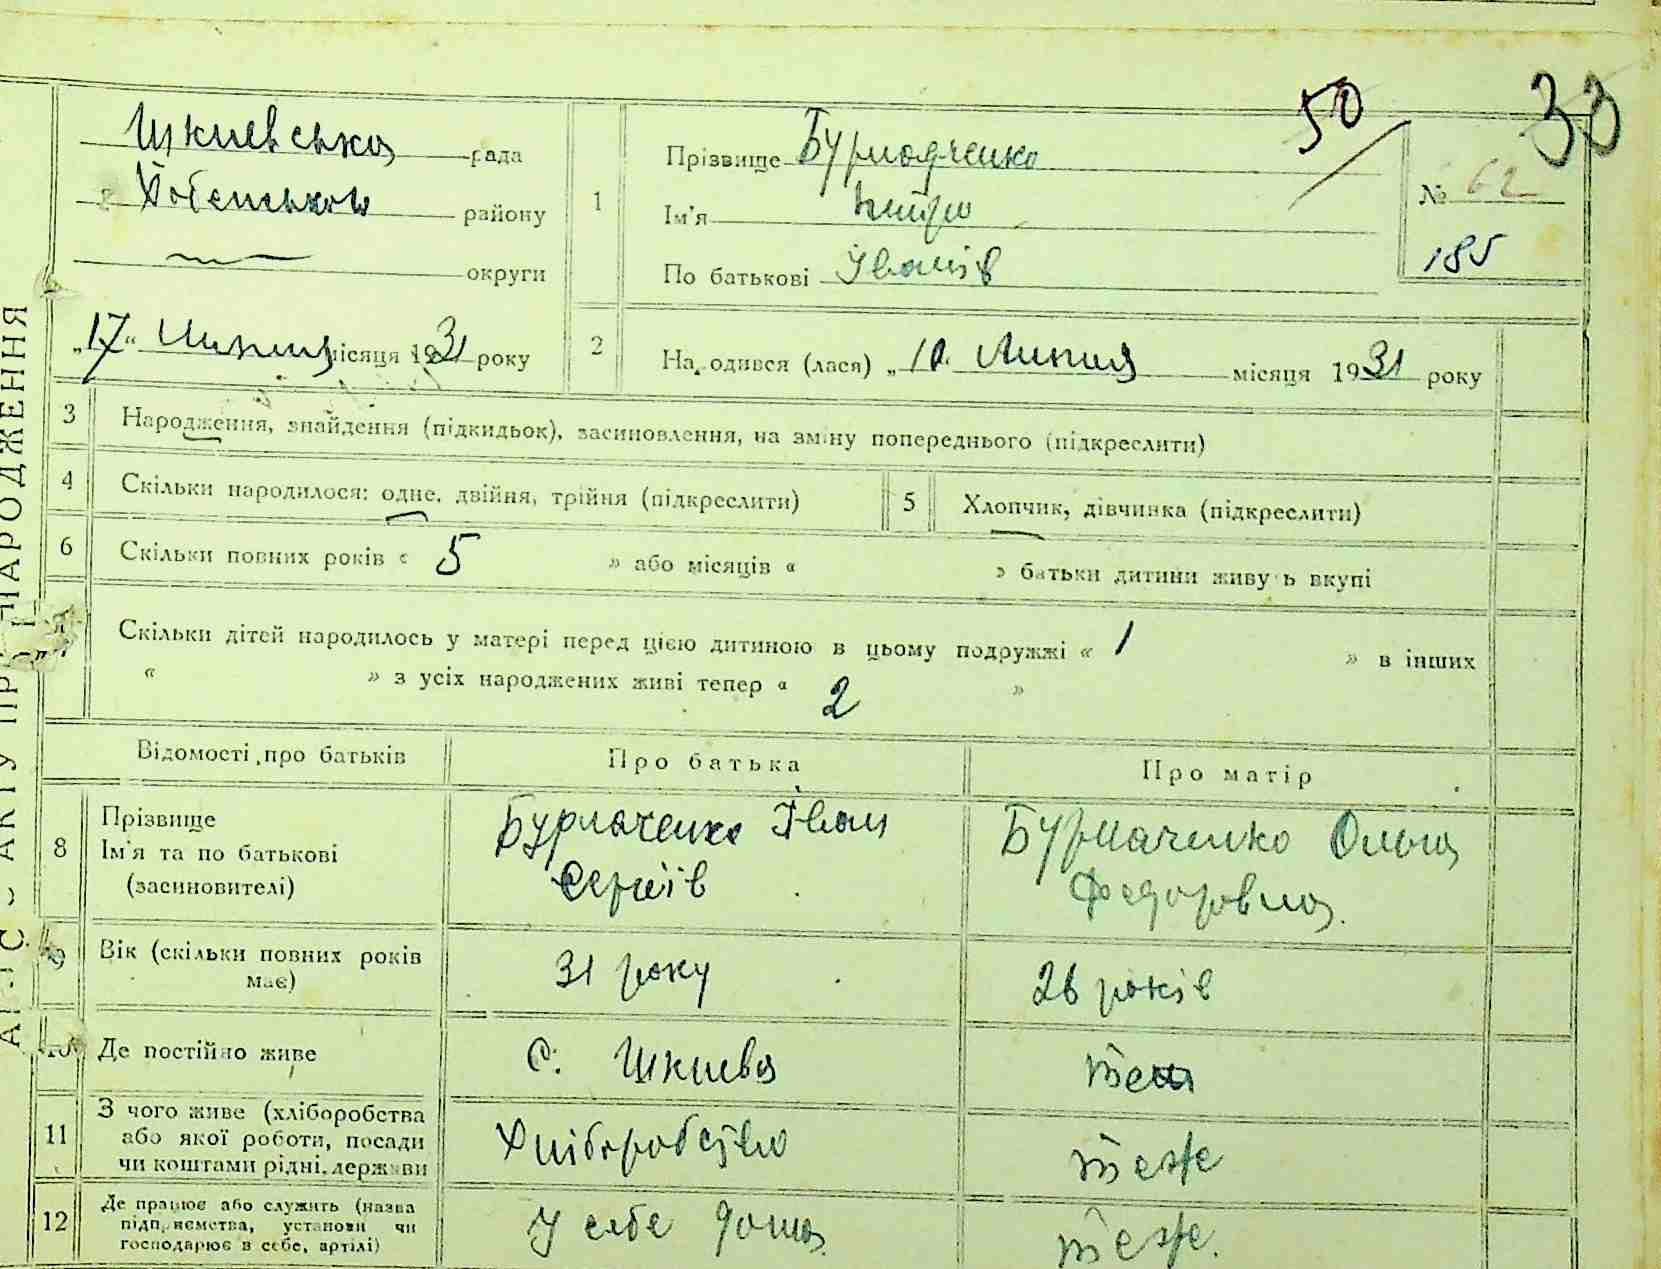 50
33
Шкнєвська рада
Прізвище Бурмаченко
№ 62
Хабенського району
1
Ім'я Петро
185
округи
По батькові Іванів
„17“ Липня місяця 1931 року
2
Народився (лася) „10. Липня місяця 1931 року
3 Народження, знайдення (підкидьок), засиновлення, на зміну попереднього (підкреслити)
4 Скільки народилося: одне, двійня, трійня (підкреслити)
5 Хлопчик, дівчинка (підкреслити)
6 Скільки повних років « 5 » або місяців « » батьки дитини живуть вкупі
Скільки дітей народилось у матері перед цією дитиною в цьому подружжі « 1 » в інших
« » з усіх народжених живі тепер « 2 »
Відомості про батьків
Про батька
Про матір
8
Прізвище
Ім'я та по батькові
(засиновителі)
Бурмаченко Іван
Сергіїв
Бурмаченко Ольга
Федоровна.
9
Вік (скільки повних років
має)
31 року
26 років
10
Де постійно живе
С. Шкнева
теж
11
З чого живе (хліборобства
або якої роботи, посади
чи коштами рідні, держави
Хліборобство
теже
12
Де працює або служить (назва
підприємства, установи чи
господарює в себе, артілі)
У себе дома
теже.